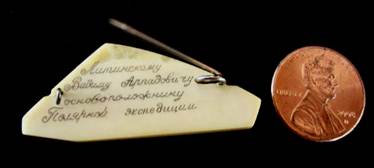 Литинскому
Вадиму Арпадовичу
основоположнику
Полярной экспедиции